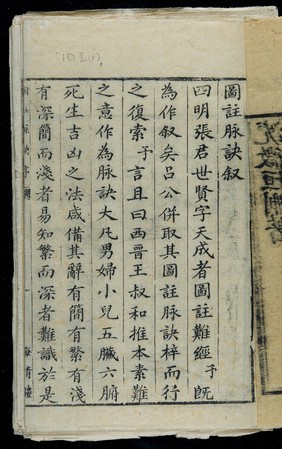 圖註脉訣叙
四明張君世賢字天成者圖註難經予既
為作叙矣吕公併取其圖註脉訣梓而行
之復索予言且曰西晋王叔和推本素難
之意作為脉訣大凡男婦小兒五臟六腑
死生吉凶之法咸備其辭有簡有繁有淺
有深簡而淺者易知繁而深者難識於是